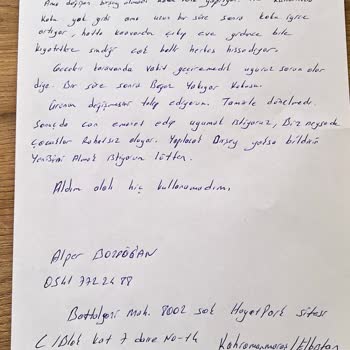 Ama değişen birşey olmadı
Koku yok gibi ama uzun bir süre sonra koku iyice
artıyor, hatta karavanda çıkıp eve girdince bile
kıyafetlere sindiği çok belli herkes hissediyor.
Gecebir karavanda vakit geçiremedik uğursuz sorun olar
diye. Bir süre sonra Boğaz yakıyor kokusu.
Ürünün değişmesini talep ediyorum. Tamirle düzelmedi.
Sonuçda can emanet edip uyumak istiyoruz, Biz neyse de
çocuklar Rahatsız oluyor. Yapılacak Birşey yoksa bildiği
Yenisini Almak istiyorum lütfen.
Aldım olalı hiç kullanamadım.
Alper BOZDOĞAN
0541 772 24 88
Battalgazi mah. 8002 sok HayatPark sitesi
C/Blok kat 7 daire No-14 Kahramanmaraş/Elbistan